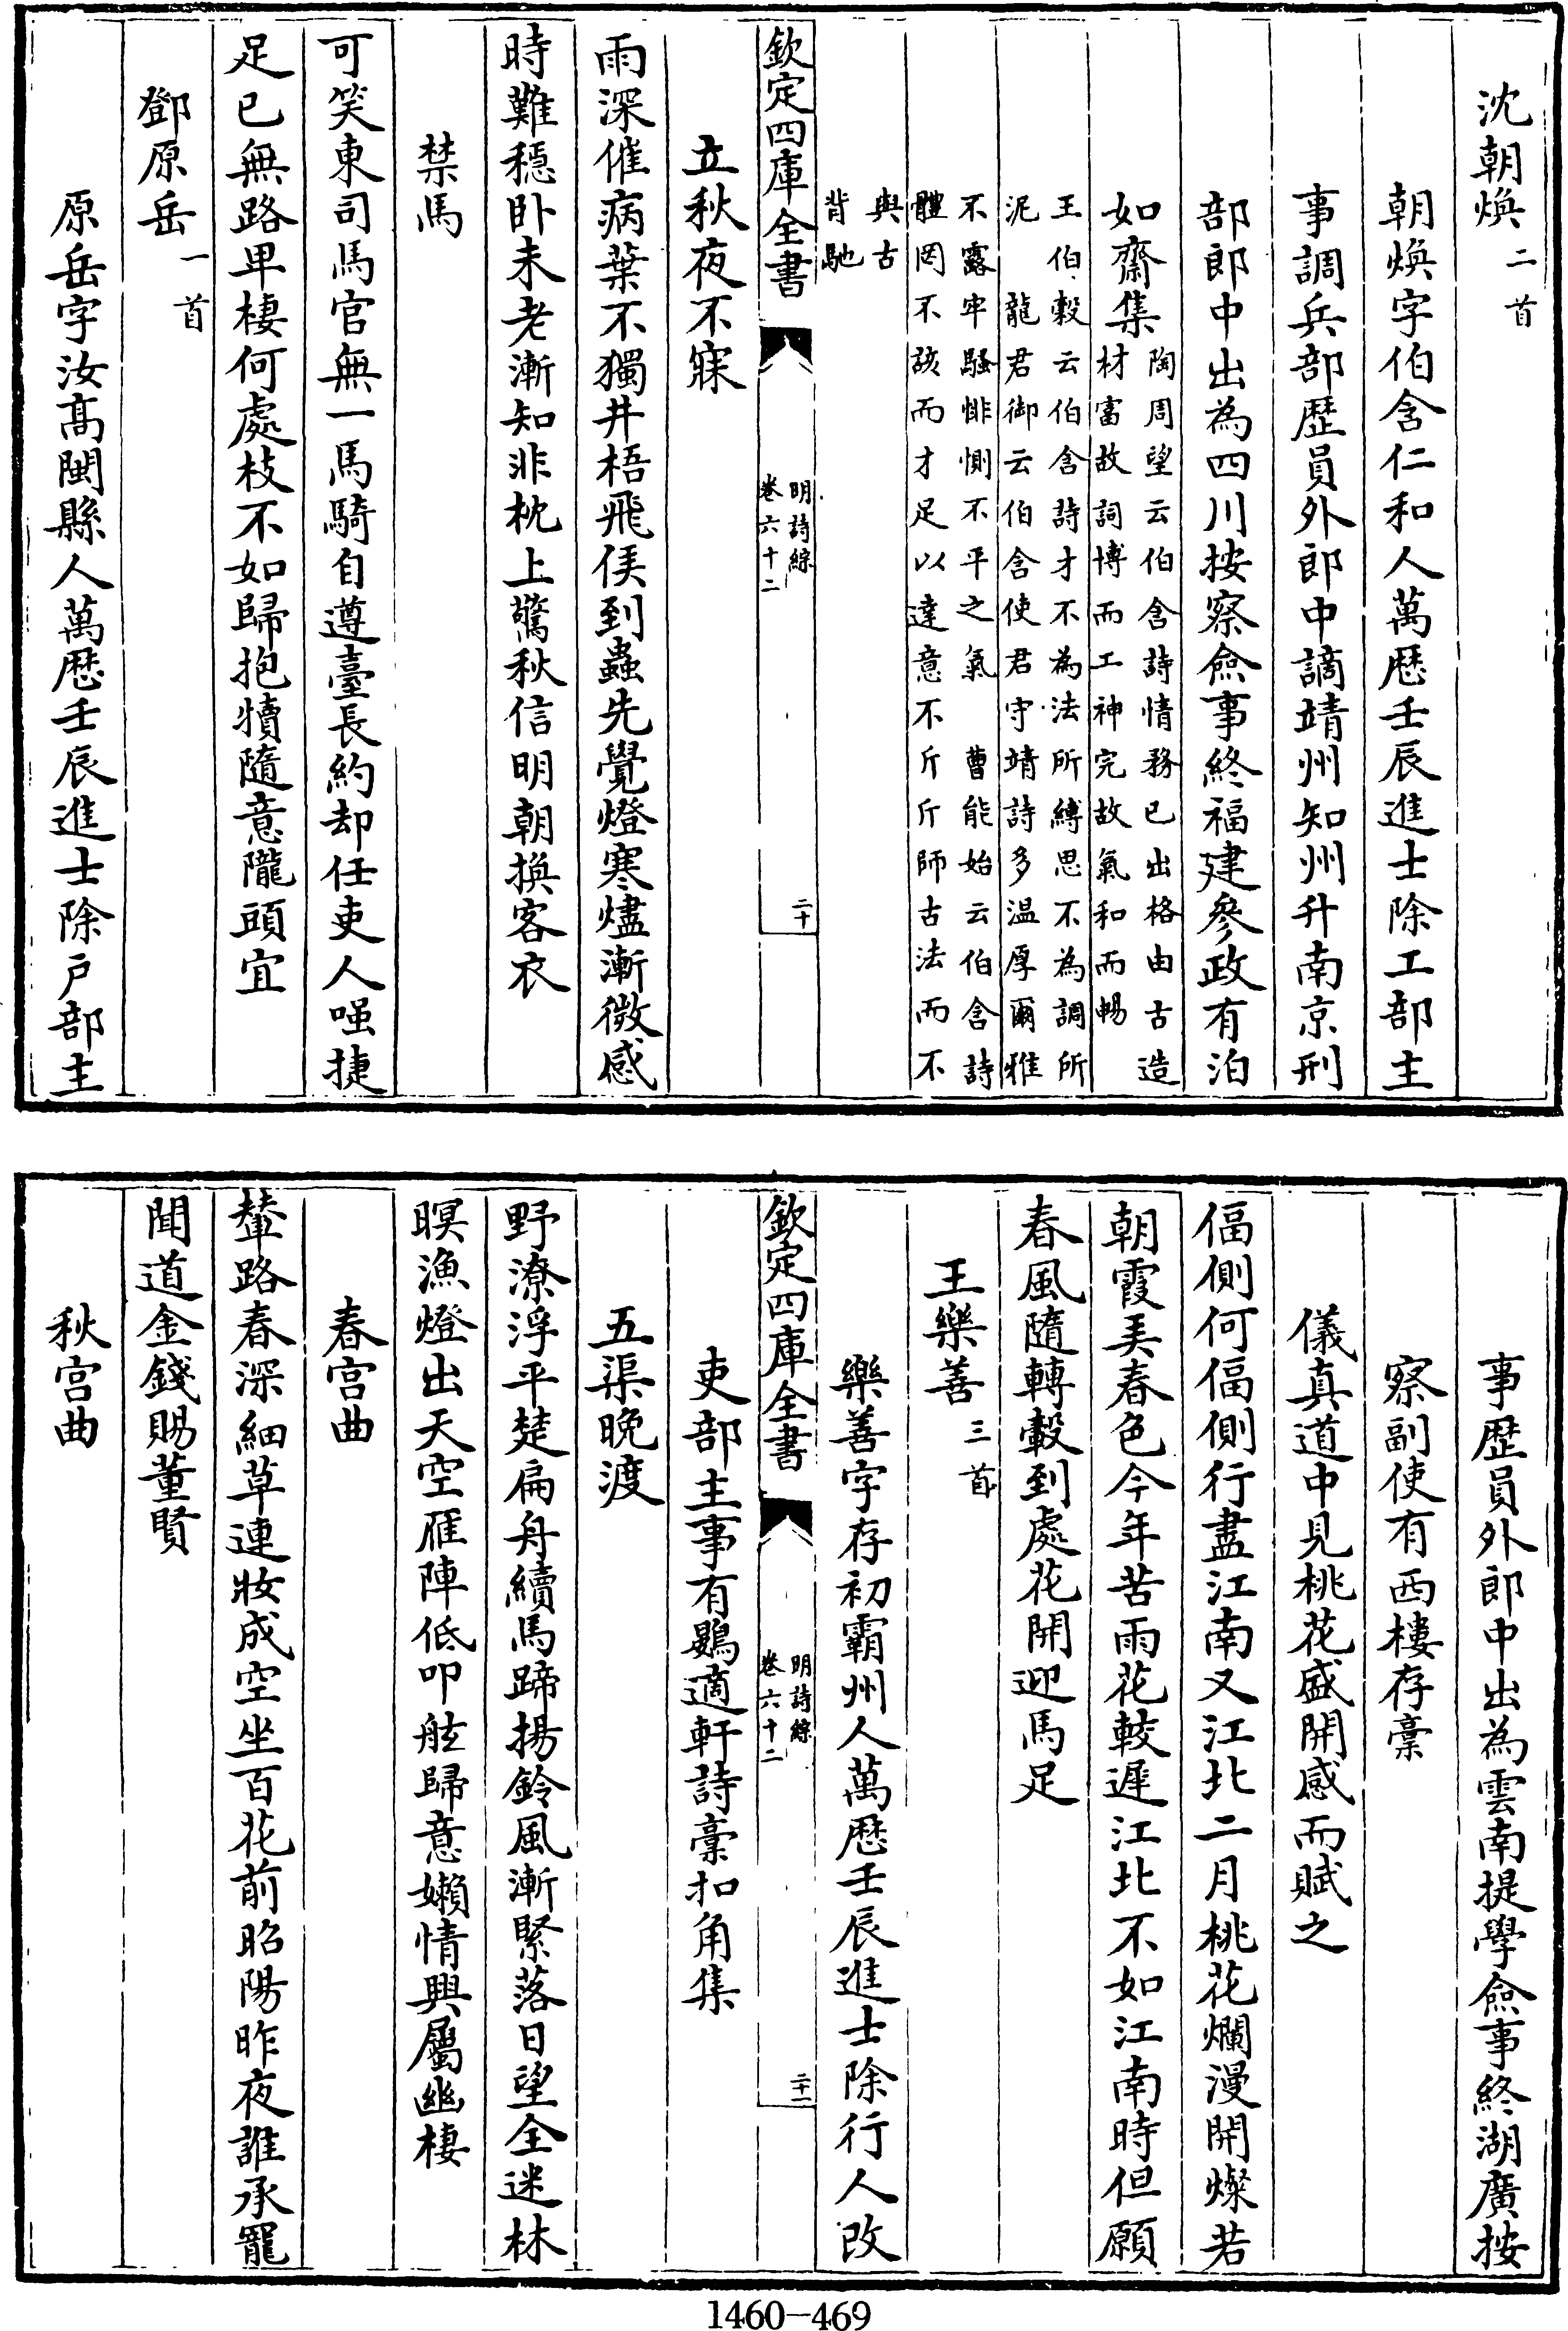 沈朝煥二首
朝煥字伯含仁和人萬厯壬辰進士除工部主
事調兵部歴員外郎中謫靖州知州升南京刑
部郎中出為四川按察僉事終福建參政有泊
如齋集陶周望云伯含詩情務已出格由古造
材富故詞博而工神完故氣和而暢
王伯穀云伯含詩才不為法所縛思不為調所
泥 龍君御云伯含使君守靖詩多温厚爾雅
不露牢騷悱惻不平之氣 曹能始云伯含詩
體罔不該而才足以達意不斤斤師古法而不
與古
背馳
欽定四庫全書
明詩綜
卷六十二
二十
立秋夜不寐
雨深催病葉不獨井梧飛𠉀到蟲先覺燈寒燼漸微感
時難穩卧未老漸知非枕上驚秋信明朝換客衣
禁馬
可笑東司馬官無一馬騎自遵臺長約却任吏人嗤捷
足已無路卑棲何處枝不如歸抱犢隨意隴頭宜
鄧原岳一首
原岳字汝髙閩縣人萬厯壬辰進士除户部主
事歴員外郎中出為雲南提學僉事終湖廣按
察副使有西樓存稾
儀真道中見桃花盛開感而賦之
偪側何偪側行盡江南又江北二月桃花爛漫開燦若
朝霞美春色今年苦雨花較遲江北不如江南時但願
春風隨轉轂到處花開迎馬足
王樂善三首
樂善字存初霸州人萬厯壬辰進士除行人改
欽定四庫全書
明詩綜
卷六十二
二十一
吏部主事有鷃適軒詩稾扣角集
五渠晚渡
野潦浮平楚扁舟續馬蹄揚鈴風漸緊落日望全迷林
暝漁燈出天空雁陣低叩舷歸意嬾情興屬幽棲
春宫曲
輦路春深細草連妝成空坐百花前昭陽昨夜誰承寵
聞道金錢賜董賢
秋宫曲
1460—469